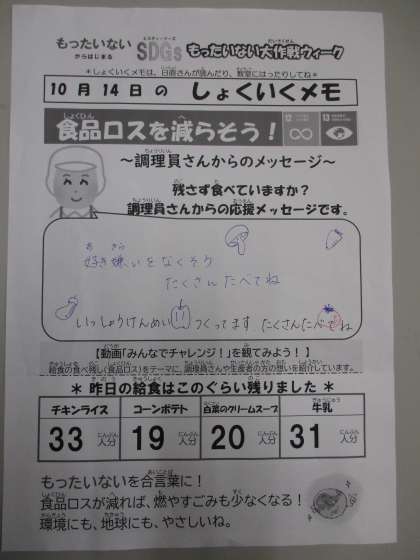 もったいない
からはじまる
SDGs
エスディージーズ
もったいない大作戦ウィーク
＊しょくいくメモは、日直さんが読んだり、教室にはったりしてね＊
10月14日の しょくいくメモ
食品ロスを減らそう！
12
13
～調理員さんからのメッセージ～
残さず食べていますか？
調理員さんからの応援メッセージです。
好き嫌いをなくそう
たくさんたべてね
いっしょうけんめい つくってます たくさんたべてね
【動画「みんなでチャレンジ！」を観てみよう！】
給食の食べ残し(食品ロス)をテーマに、調理員さんや生産者の方の想いを紹介しています。
＊ 昨日の給食はこのぐらい残りました ＊
チキンライス コーンポテト 白菜のクリームスープ 牛乳
33人分 19人分 20人分 31人分
もったいないを合言葉に！
食品ロスが減れば、燃やすごみも少なくなる！
環境にも、地球にも、やさしいね。